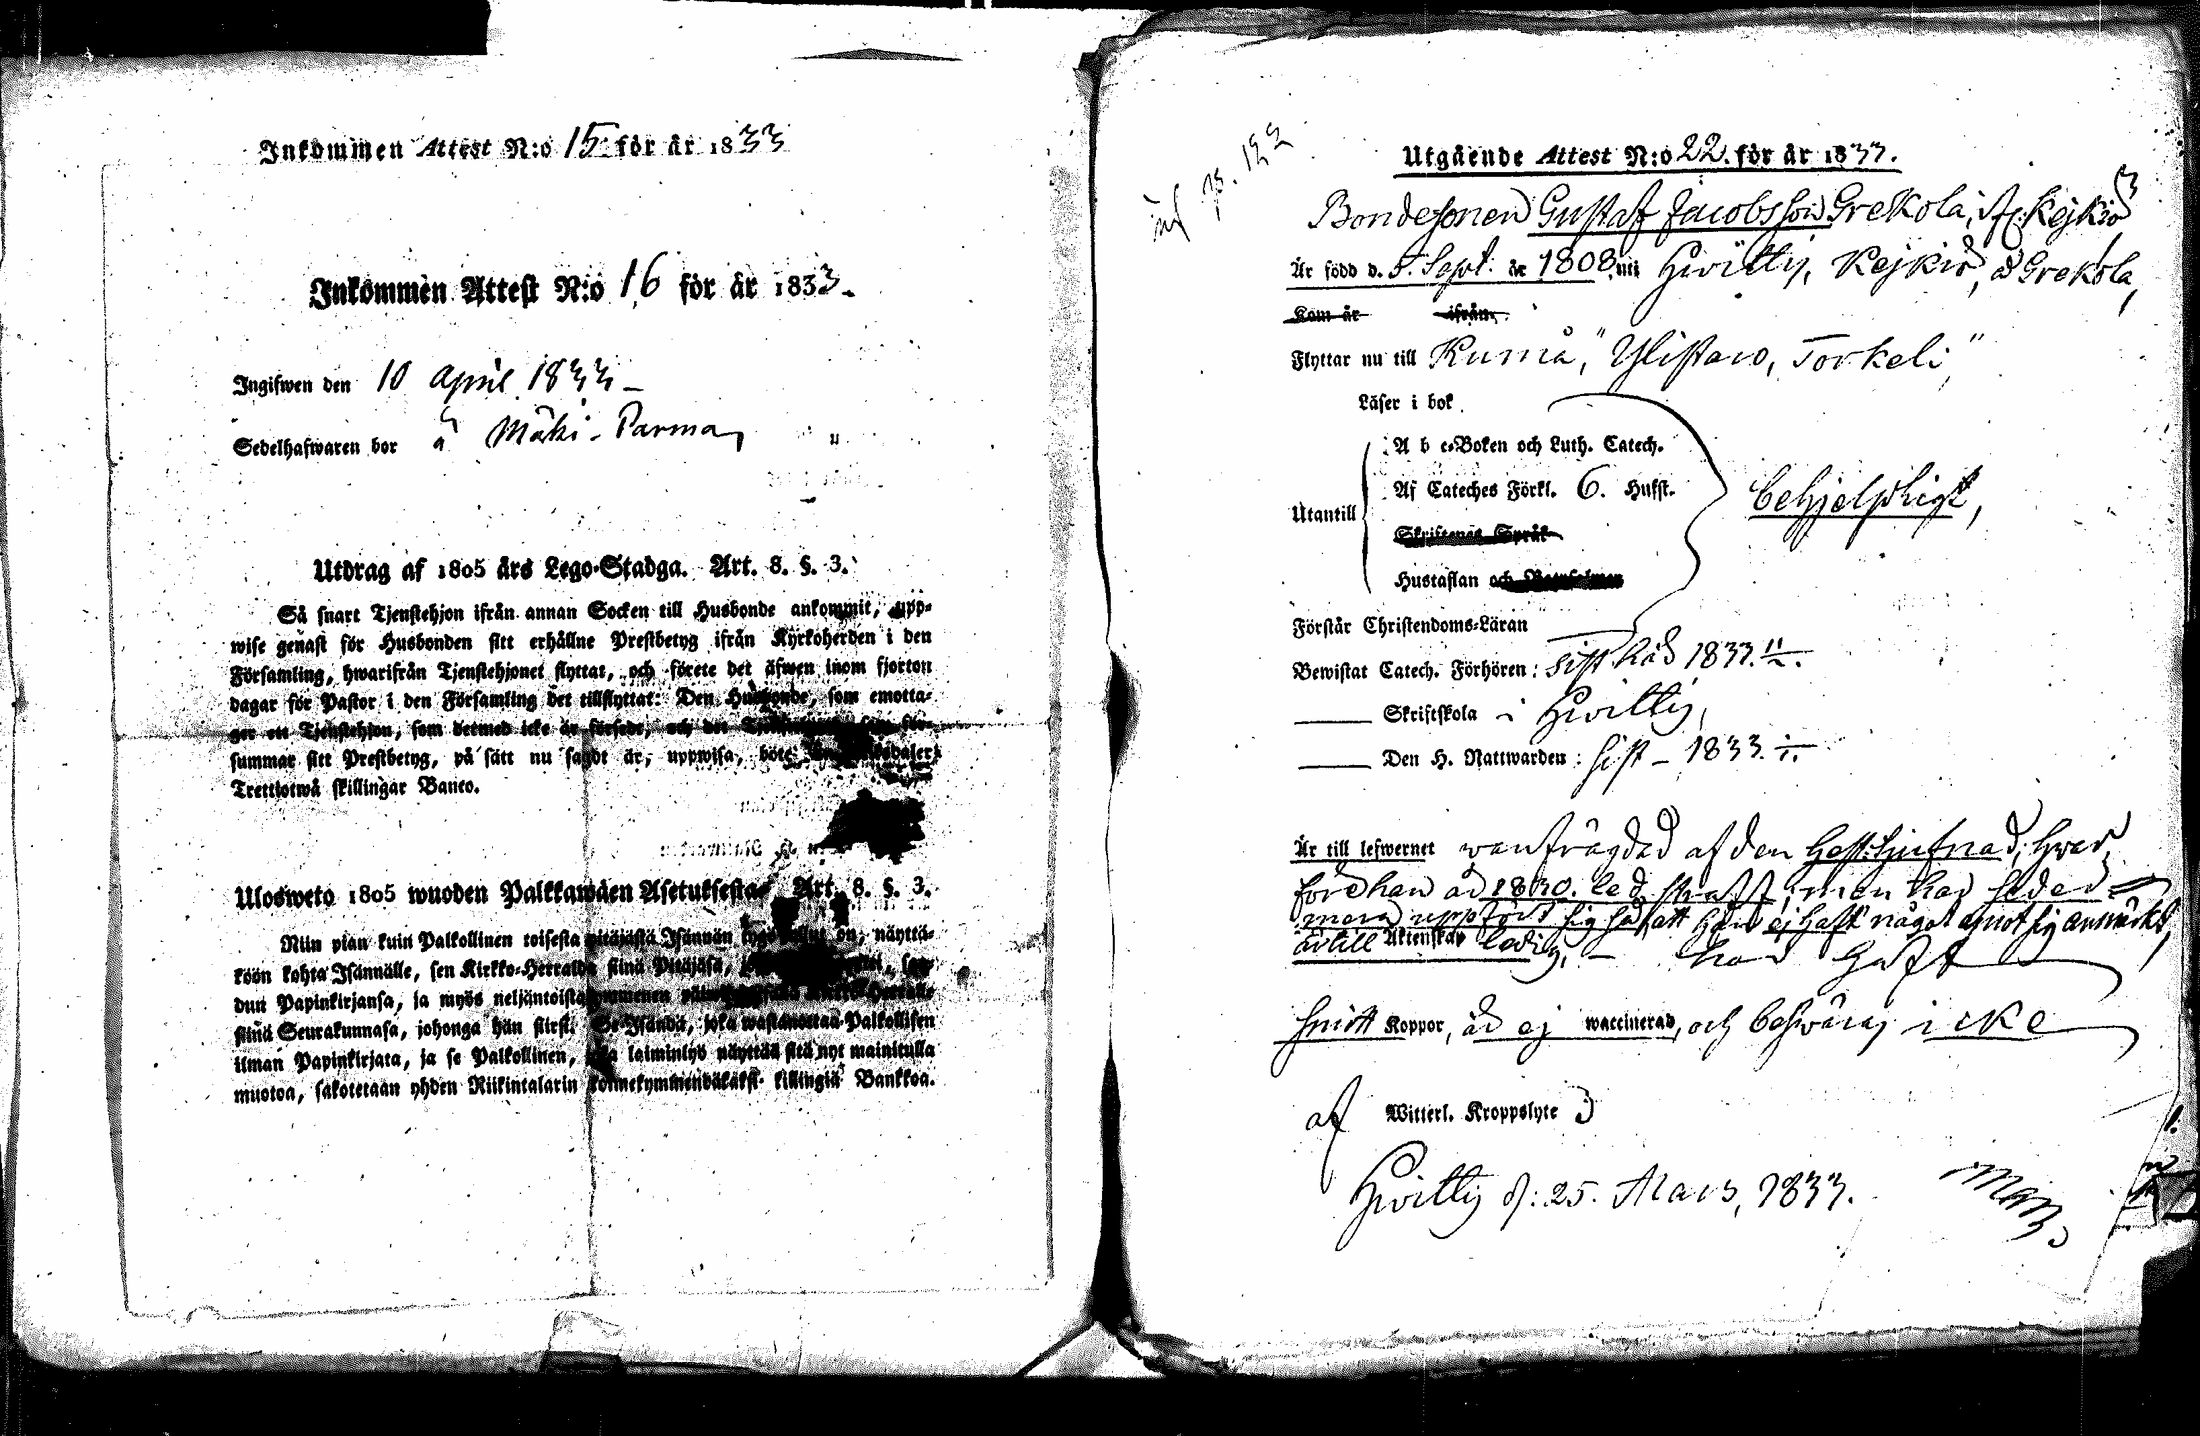 Inkommen Attest N:o 15 för år 1833
Inkommen Attest N:o 16 för år 1833.
Ingifwen den 10 April 1833 –
Sedelhafwaren bor å Mäki-Parma,
Utdrag af 1805 års Lego-Stadga. Art. 8. §. 3.
Så snart Tjenstehjon ifrån annan Socken till Husbonde ankommit, upp-
wise genast för Husbonden sitt erhållne Prestbetyg ifrån Kyrkoherden i den
Församling, hwarifrån Tjenstehjonet flyttat, och förete det äfwen inom fjorton
dagar för Pastor i den Församling det tillflyttat: Den Husbonde, som emotta-
ger ett Tjenstehjon, som dermed icke är försedt, och det
summar sitt Prestbetyg, på sätt nu sagdt är, uppwisa, böte
Trettiotwå skillingar Banco.
Ulosweto 1805 wuoden Palkkawäen Asetuksesta Art. 8. §. 3.
Niin pian kuin Palkollinen toisesta pitäjästä Isännän tygö on, näyttä-
köön kohta Isännälle, sen Kirkko-Herralda siinä Pitäjäsä,
dun Papinkirjansa, ja myös neljäntoista
siinä Seurakunnasa, johonga hän siirsi. Se Isändä, joka wastanottaa Palkollisen
ilman Papinkirjata, ja se Palkollinen, laiminlyö näyttää sitä nyt mainitulla
muotoa, sakotetaan yhden Riikintalarin kolmekymmendäkaksi killingiä Bankkoa.
inf p. 122
Utgående Attest N:o 22. för år 1833.
Bondesonen Gustaf Jacobsson Grekola, fr. Kejkiö
Är född d. 5. Sept. år 1808 uti Hwittis, Kejkiö, å Grekola,
Kom år ifrån
Flyttar nu till Kumå, "Ylistaro, Torkeli,"
Läser i bok
A b c-Boken och Luth. Catech.
Af Cateches Förkl. 6. Hufst.
Utantill
behjelpligt,
Skriftenes Språk
Hustaflan och
Förstår Christendoms-Läran
Bewistat Catech. Förhören: sist här 1833.
Skriftskola i Hwittis,
Den H. Nattwarden: sist – 1833.
Är till lefwernet wanfrägdad af den hwar
före han år 1830. led straff; men har seder
mera uppfört sig så, att han ej haft något emot sig anmärkt,
är till Äktenskap ledig, – har haft
smitt Koppor, är ej waccinerad, och beswäras icke
af Witterl. Kroppslyte
Hwittis d: 25. Mars, 1833.